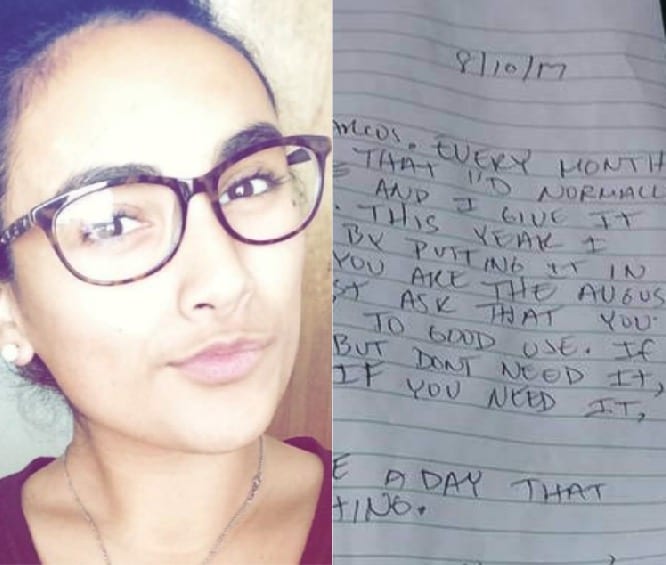 8/10/17
MARCOS. EVERY MONTH
THAT I'D NORMALL
AND I GIVE IT
. THIS YEAR I
BY PUTTING IT IN
YOU ARE THE AUGUS
ST ASK THAT YOU
TO GOOD USE. IF
BUT DONT NEED IT,
IF YOU NEED IT,
E A DAY THAT
TING.